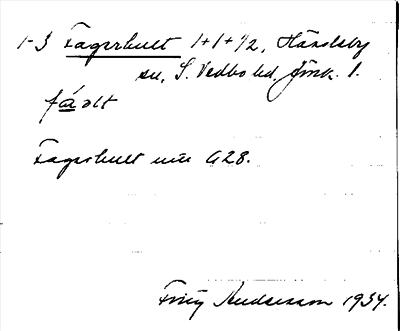 1-3 Fagerhult 1+1+1/2, Händsby
sn, S. Vedbo hd. Jönk. l.
fáølt
Fagerhult nu G28.
Fritz Andersson 1934.